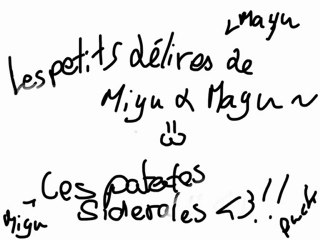 <Mayu
Les petits délires de
Miyu & Mayu ~
=3
Ces patates
Siderales <3!!
Miyu >